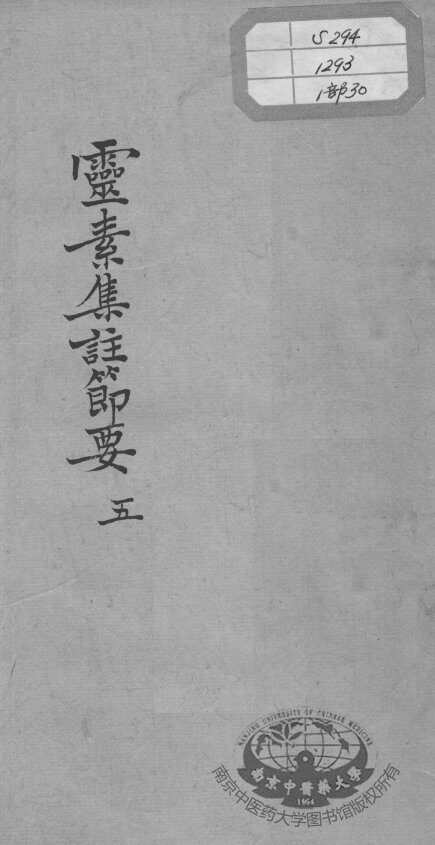 S294
1293
1部30
靈素集註節要 五
NANJING UNIVERSITY OF CHINESE MEDICINE
南京中醫藥大學
1954
南京中医药大学图书馆版权所有